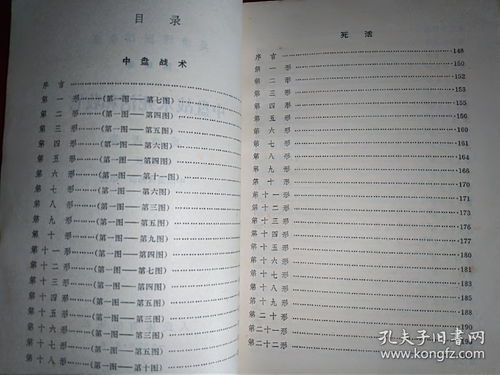 目录
中盘战术
序言
第一形……(第一图——第七图)
第二形……(第一图——第四图)
第三形……(第一图——第五图)
第四形……(第一图——第六图)
第五形……(第一图——第四图)
第六形……(第一图——第十一图)
第七形……(第一图——第六图)
第八形……(第一图——第三图)
第九形……(第一图——第五图)
第十形……(第一图——第九图)
第十一形……(第一图——第四图)
第十二形……(第一图——第七图)
第十三形……(第一图——第四图)
第十四形……(第一图——第五图)
第十五形……(第一图——第三图)
第十六形……(第一图——第三图)
第十七形……(第一图——第五图)
第十八形……(第一图——第十图)
死活
序言……148
第一形……150
第二形……152
第三形……153
第四形……155
第五形……156
第六形……160
第七形……161
第八形……164
第九形……166
第十形……170
第十一形……171
第十二形……173
第十三形……176
第十四形……177
第十五形……180
第十六形……181
第十七形……183
第十八形……185
第十九形
第二十形
第二十一形
第二十二形……193
孔夫子旧书网
www.kongfz.com